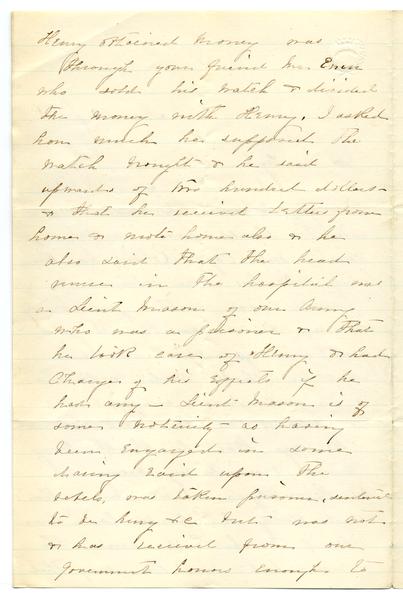 Henry obtained money was
through your friend Mr.
who sold his watch & divided
the money with Henry, I asked
how much he supposed the
watch brought & he said
upwards of two hundred dollars
& that he received letters from
home & wrote home also & he
also said that the head
nurse in the hospital was
a Lieut Mason of our Army
who was a prisoner & that
he took care of Henry & had
Charge of his Effects if he
had any – Lieut Mason is of
some notoriety – as having
been engaged in some
daring raid upon the
rebels, was taken prisoner, sentenced
to be hung &c but was not
& has received from our
Government honors enough to